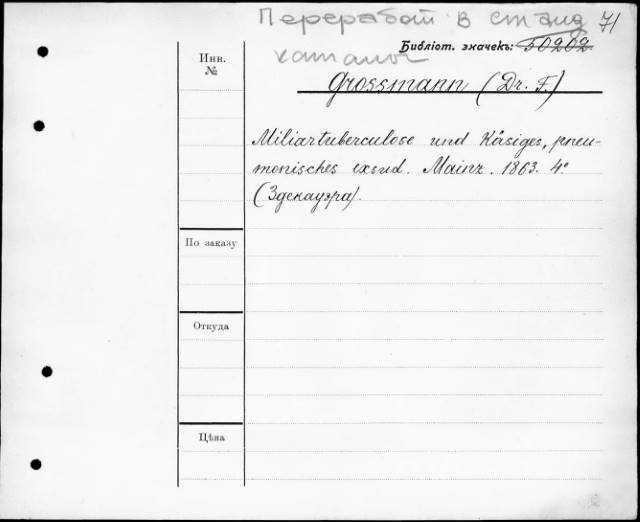 Переработ в станд 71
каталог
Библіот. значекъ: 50202
Инв.
№
Grossmann (Dr. F.)
Miliartuberculose und Käsiges, pneu-
monisches exsud. Mainz. 1863. 4°
(Здекауэра).
По заказу
Откуда
Цѣна